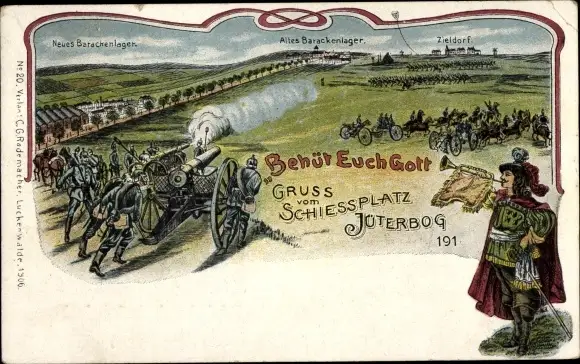 Neues Barackenlager.
Altes Barackenlager.
Zieldorf.
Behüt Euch Gott
GRUSS
vom
SCHIESSPLATZ
JÜTERBOG
191
No 20, Verlag: C.G. Rademacher, Luckenwalde, 1906.